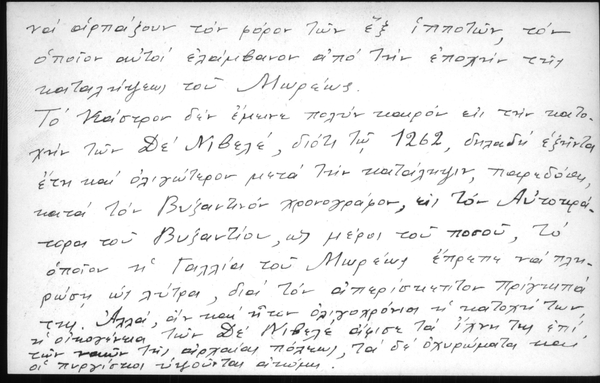 νά ἁρπάξουν τόν φόρον τῶν ἕξ ἱπποτῶν, τόν
ὁποῖον αὐτοί ἐλάμβανον ἀπό τήν ἐποχήν τῆς
καταλήψεως τοῦ Μωρέως.
Τό Κάστρον δέν ἔμεινε πολύν καιρόν εἰς τήν κατο-
χήν τῶν Δέ Νιβελέ, διότι τῷ 1262, δηλαδή ἑξῆντα
ἔτη καί ὀλιγώτερον μετά τήν κατάληψιν, παρεδόθη,
κατά τόν Βυζαντινόν χρονογράφον, εἰς τόν Αὐτοκρά-
τορα τοῦ Βυζαντίου, ὡς μέρος τοῦ ποσοῦ, τό
ὁποῖον ἡ Γαλλία τοῦ Μωρέως ἔπρεπε νά πλη-
ρώσῃ ὡς λύτρα, διά τόν ἀπερίσκεπτον Πρίγκιπά
της. Ἀλλά, ἄν καί ἦτον ὀλιγοχρόνιος ἡ κατοχή των
ἡ οἰκογένεια τῶν Δέ Νιβελέ ἄφισε τά ἴχνη της ἐπί
τῶν ναῶν τῆς ἀρχαίας πόλεως, τά δέ ὀχυρώματα καί
οἱ πυργίσκοι ὑψοῦνται ἀκόμη.